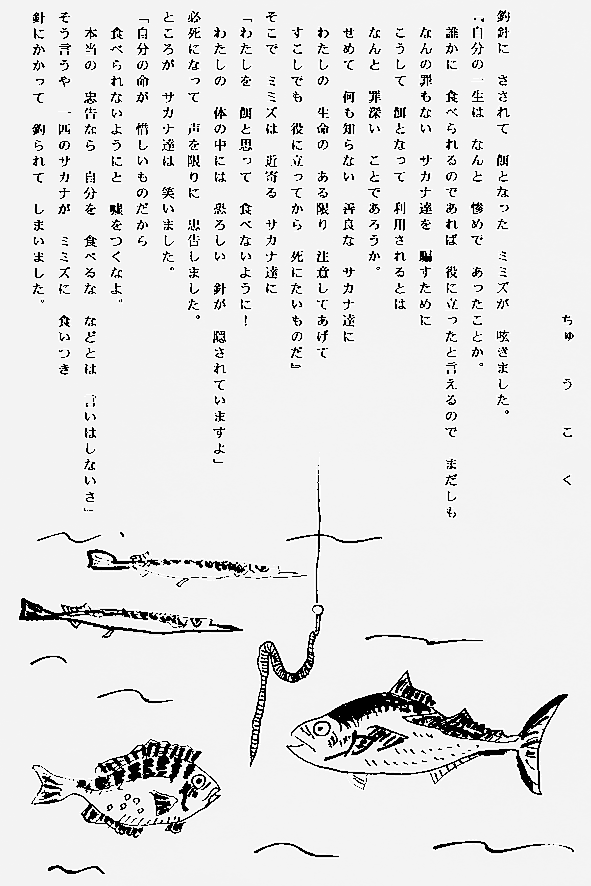 ちゅうこく
釣針に さされて 餌となった ミミズが 呟きました。
「自分の一生は なんと 惨めで あったことか。
誰かに 食べられるのであれば 役に立ったと言えるので まだしも
なんの罪もない サカナ達を 騙すために
こうして 餌となって 利用されるとは
なんと 罪深い ことであろうか。
せめて 何も知らない 善良な サカナ達に
わたしの 生命の ある限り 注意してあげて
すこしでも 役に立ってから 死にたいものだ』
そこで ミミズは 近寄る サカナ達に
「わたしを 餌と思って 食べないように！
わたしの 体の中には 恐ろしい 針が 隠されていますよ」
必死になって 声を限りに 忠告しました。
ところが サカナ達は 笑いました。
「自分の命が 惜しいものだから
食べられないようにと 嘘をつくなよ。
本当の 忠告なら 自分を 食べるな などとは 言いはしないさ」
そう言うや 一匹のサカナが ミミズに 食いつき
針にかかって 釣られて しまいました。